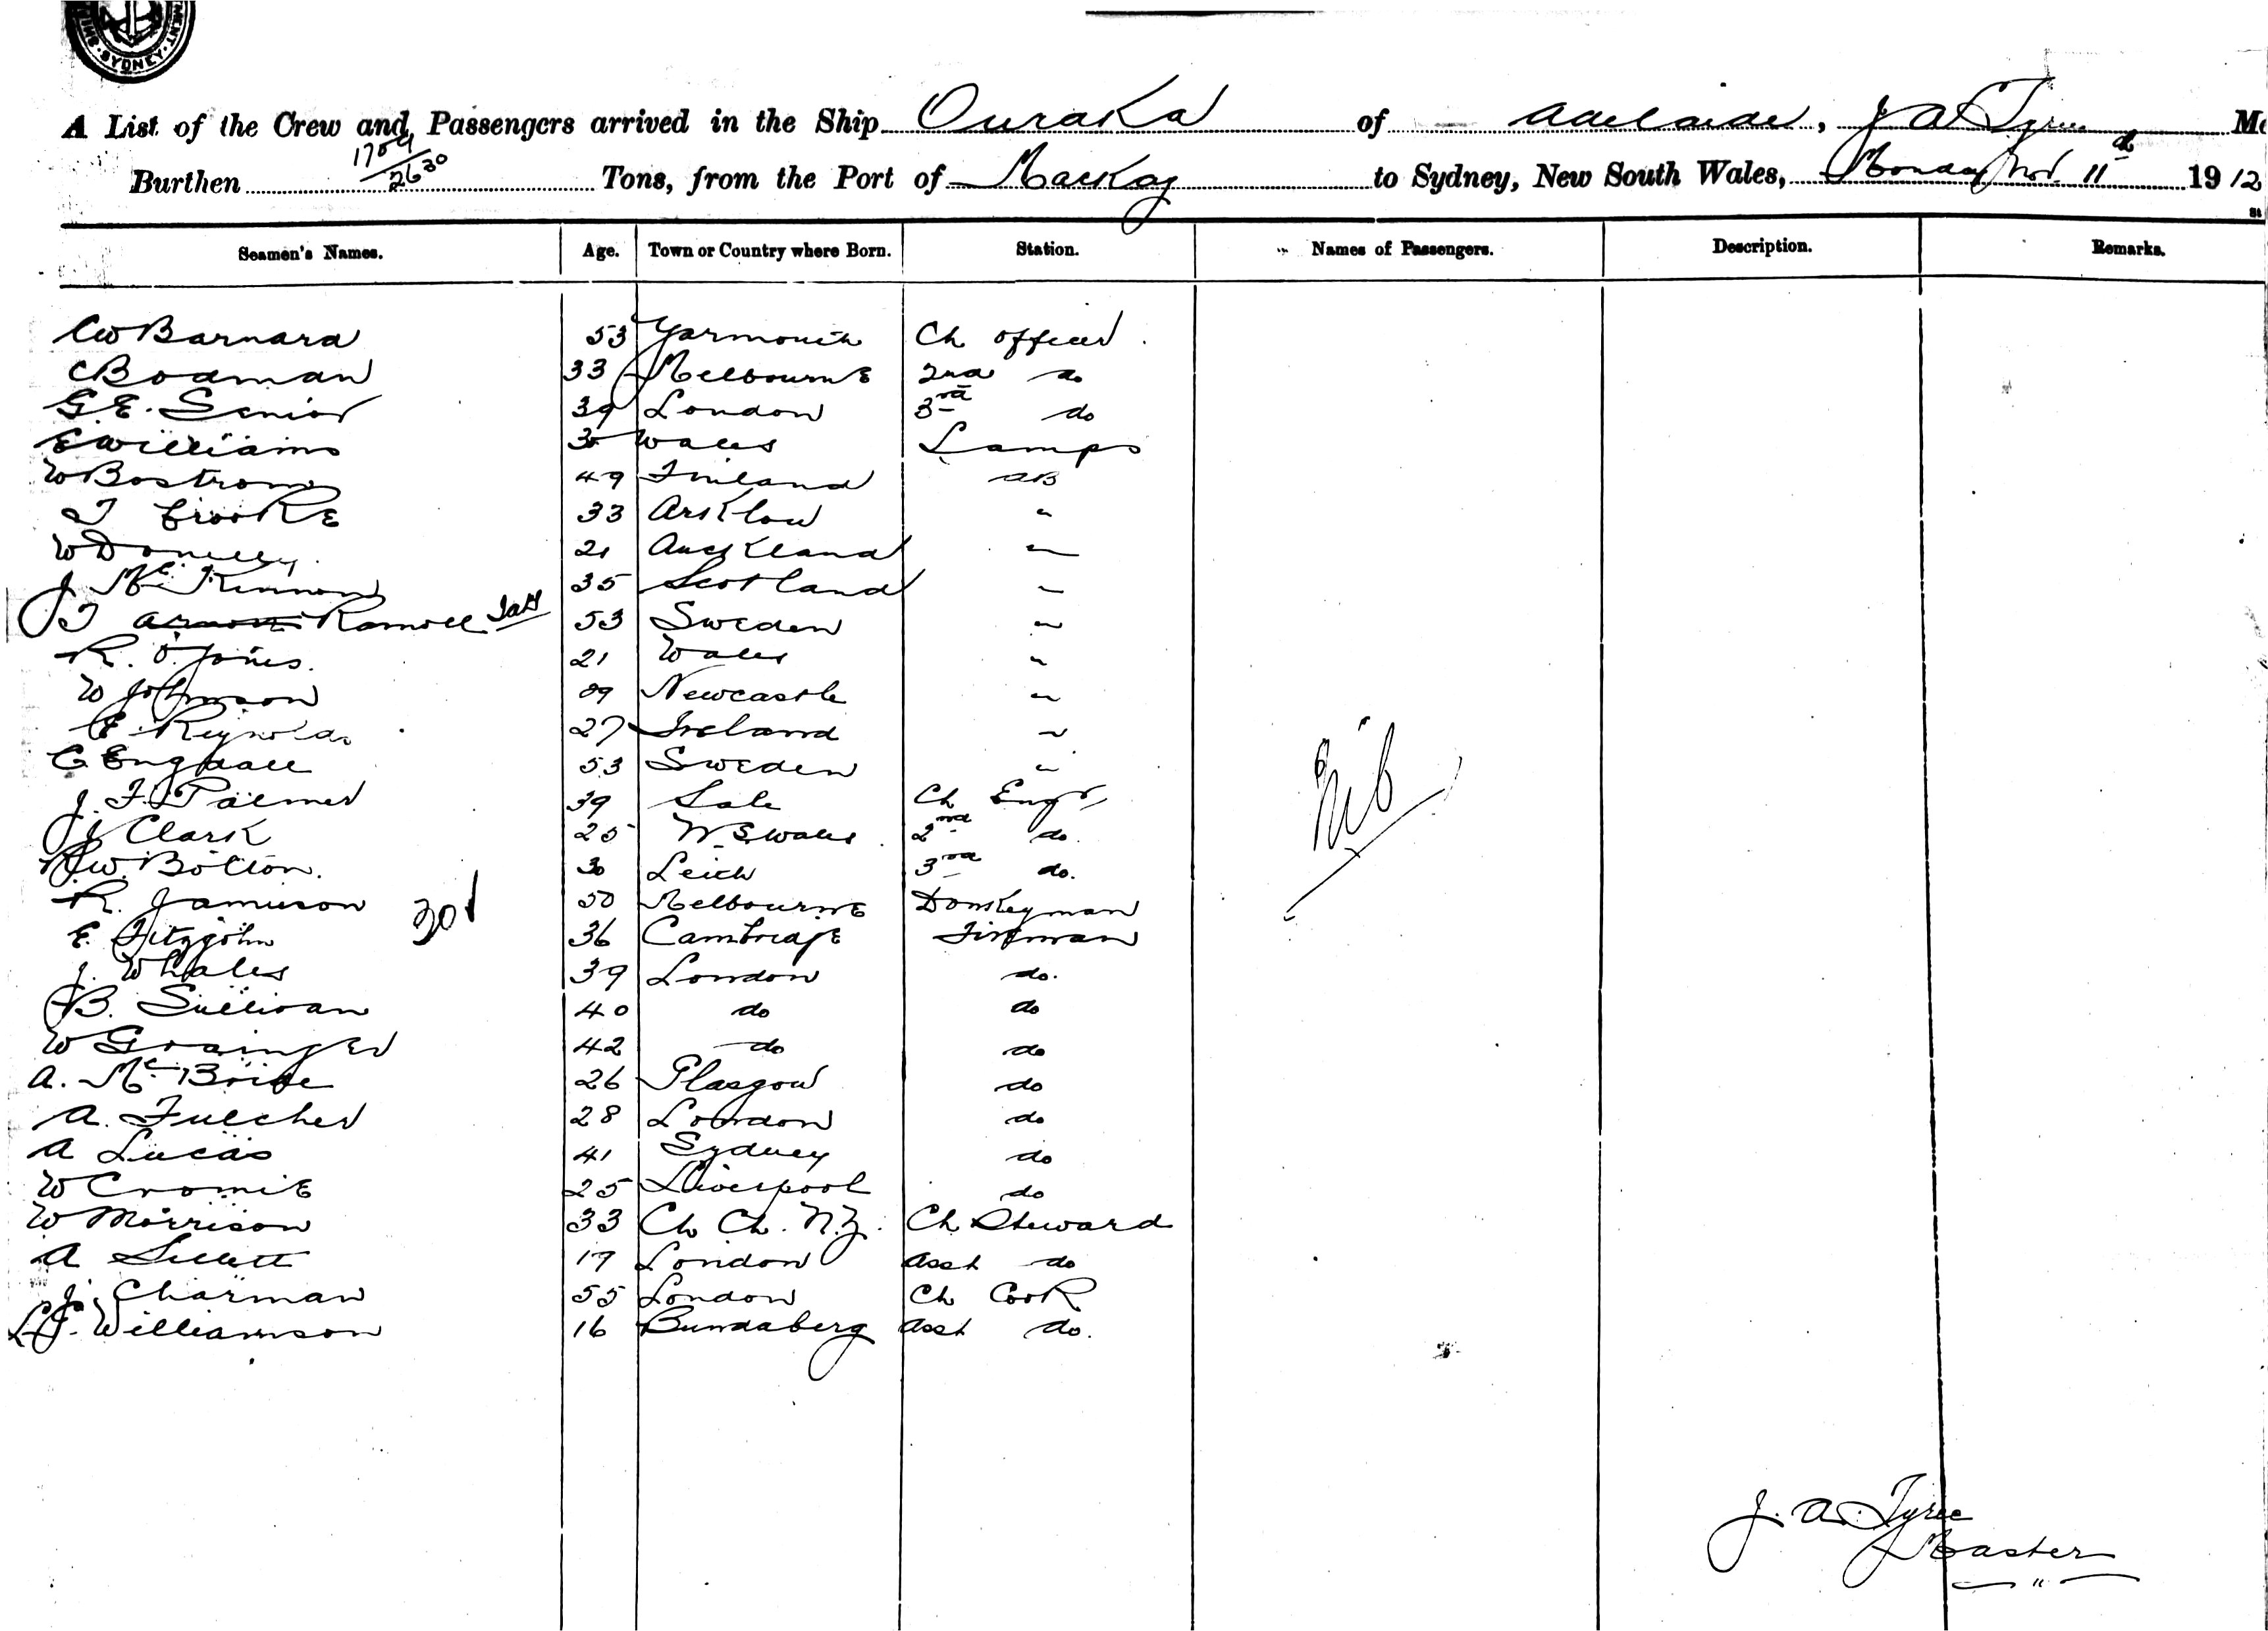 SYDNEY
A List of the Crew and Passengers arrived in the Ship Ouraka of Adelaide, J A Tyree
1759
Burthen 2630 Tons, from the Port of Mackay to Sydney, New South Wales, Monday Nov. 11th 1912
Seamen's Names. Age. Town or Country where Born. Station. Names of Passengers. Description. Remarks.
CW Barnard 53 Yarmouth Ch officer
C Bodman 33 Melbourne 2nd do
G.E. Senior 39 London 3rd do
E Williams 30 Wales Lamps
W Bostrom 49 Finland AB
T Crooke 33 Arklow "
W Donelly 21 Auckland "
J McKinnon 35 Scotland "
J Ramsell 53 Sweden "
R. O. Jones. 21 Wales "
W Johnson 29 Newcastle "
E Reynolds 27 Ireland "
C Engdall 53 Sweden "
J. F. Palmer 39 Sale Ch Engr
J Clark 25 N.S. Wales 2nd do.
R.W. Bolton. 30 Leith 3rd do.
R. Jamieson 50 Melbourne Donkeyman
30
E. Fitzjohn 36 Cambridge Fireman
J. Whales 39 London do.
B. Sullivan 40 do do
W Grainger 42 do do
A. McBride 26 Glasgow do
A. Fulcher 28 London do
A Lucas 41 Sydney do
W Cromie 25 Liverpool do
W Morrison 33 Ch Ch. N.Z. Ch Steward
A Sillett 19 London Asst do
J. Charman 55 London Ch Cook
L.J. Williamson 16 Bundaberg Asst do.
Nil
J. A. Tyree
Master